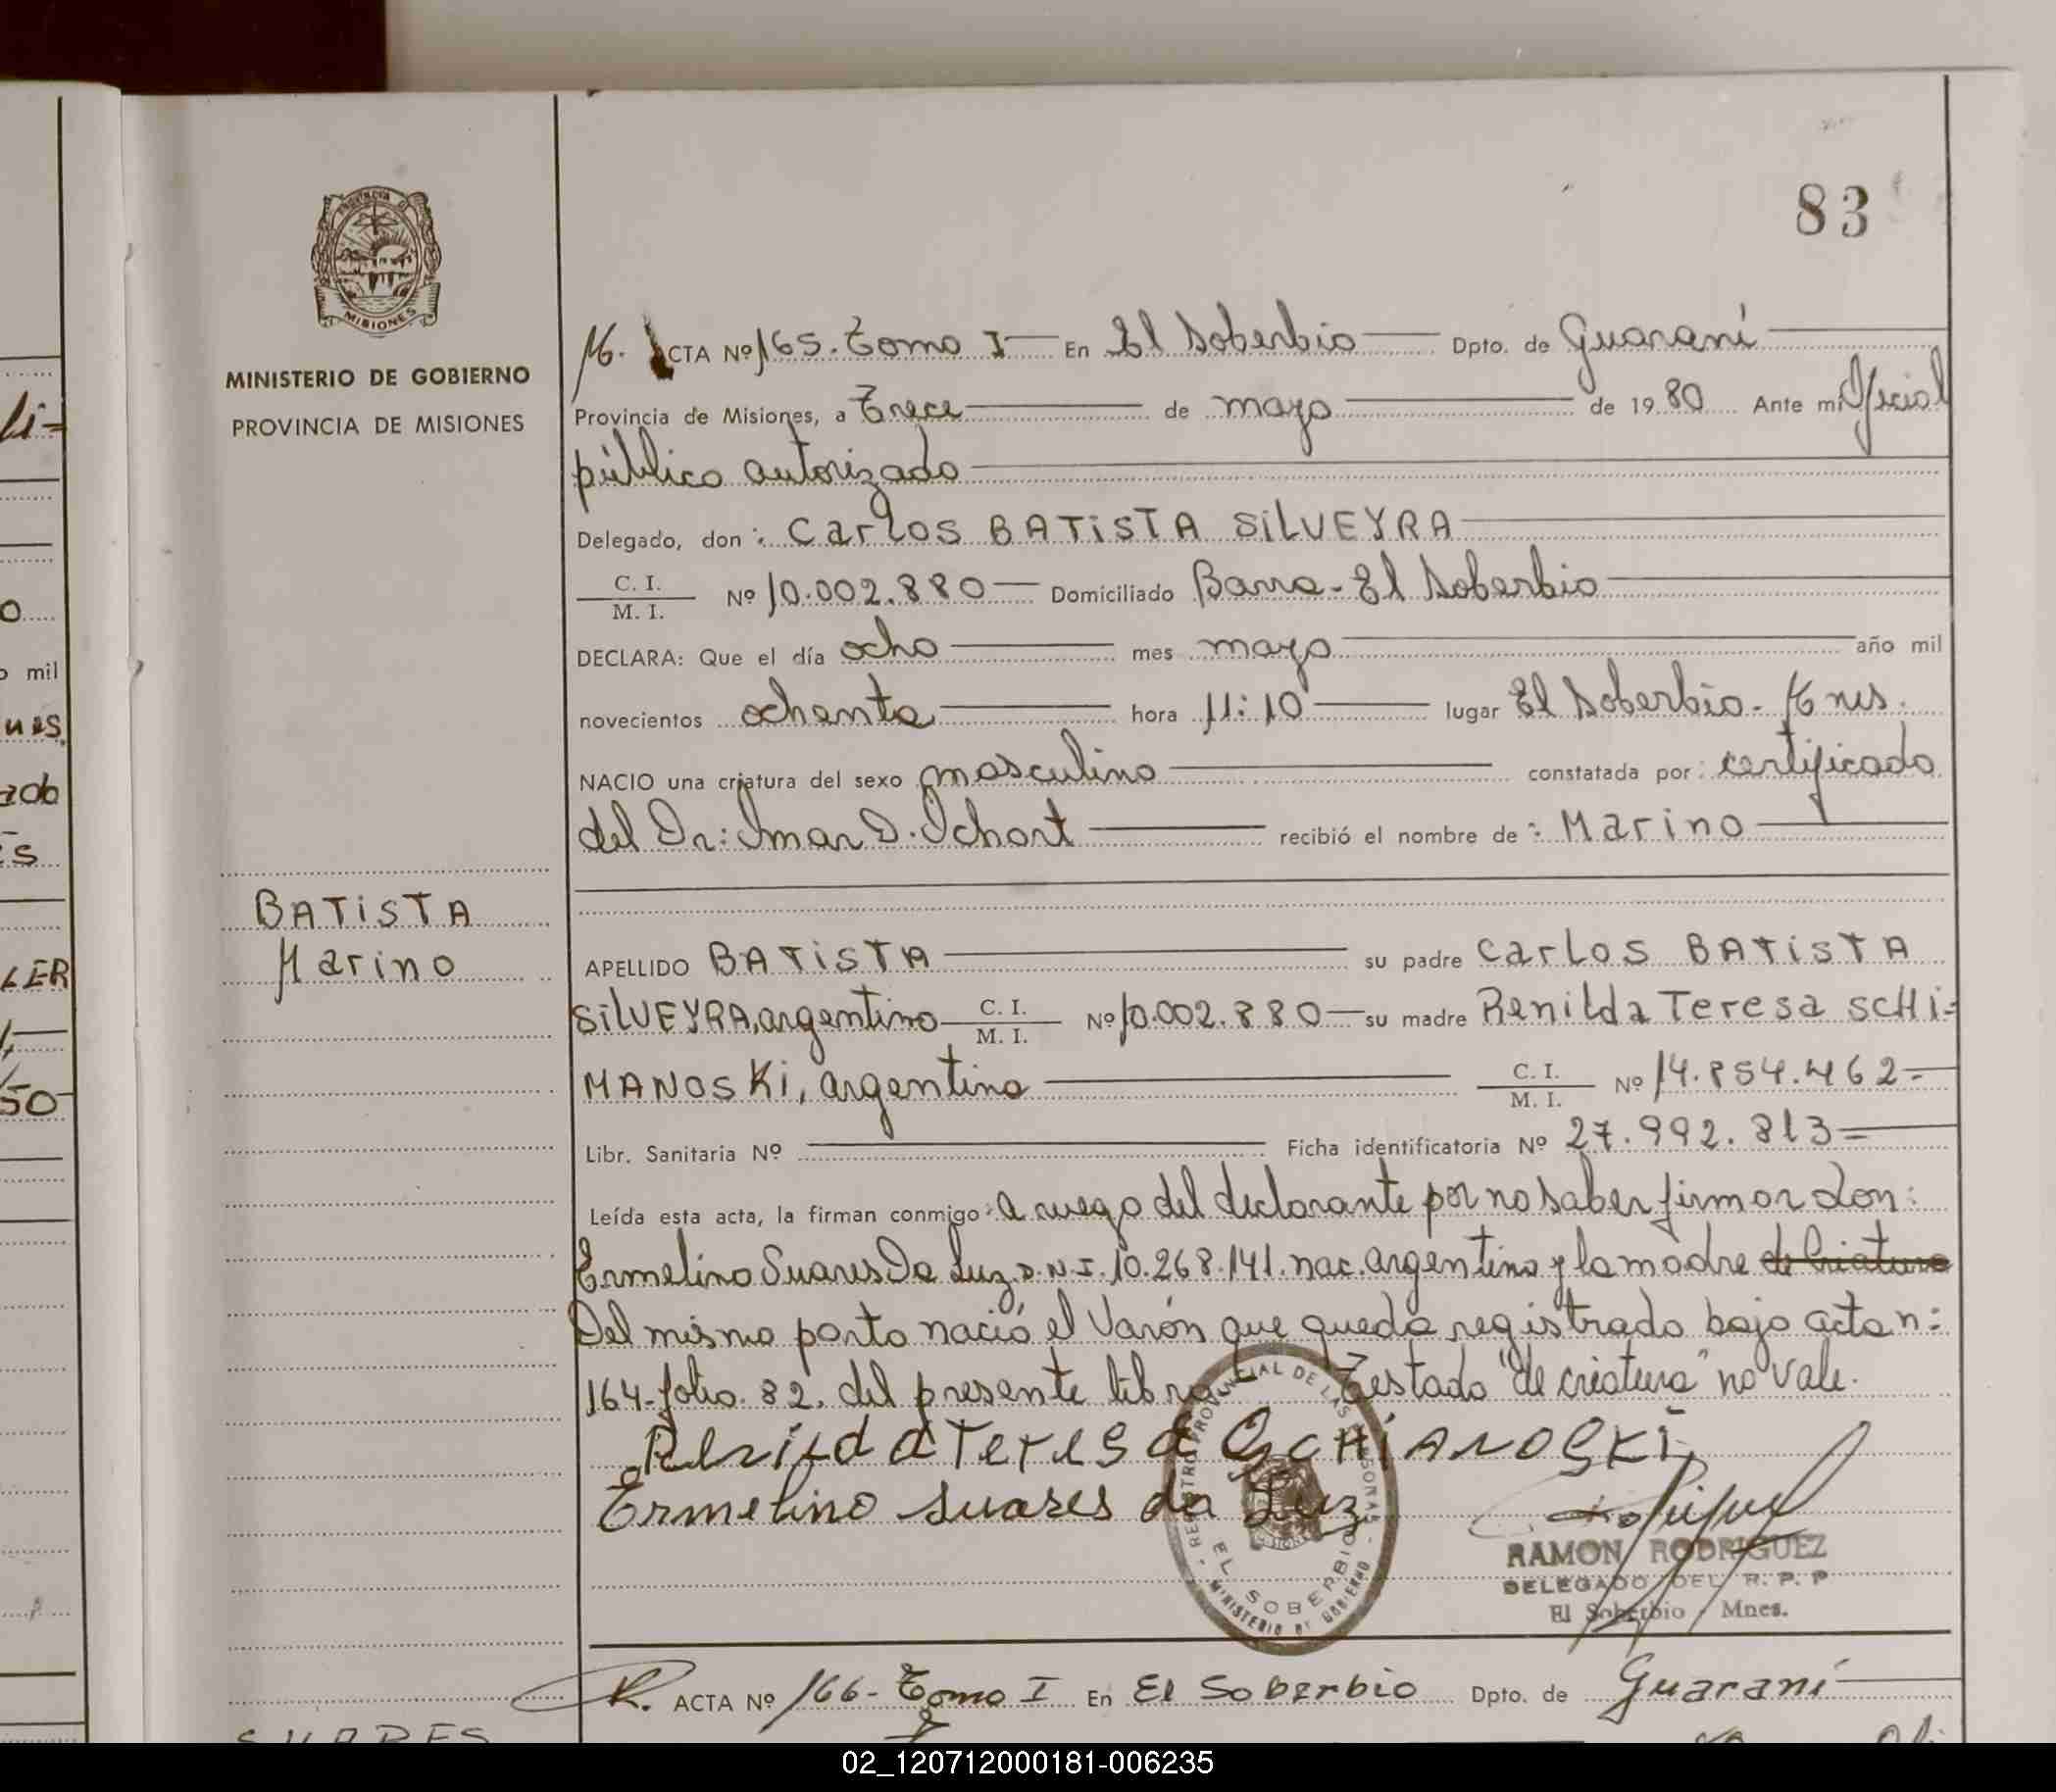 83
PROVINCIA D
MISIONES
MINISTERIO DE GOBIERNO
PROVINCIA DE MISIONES
M. ACTA Nº 165. Tomo I En El Soberbio Dpto. de Guaraní
Provincia de Misiones, a Trece de mayo de 1980 Ante mi Oficial
público autorizado
Delegado, don: Carlos BATiSTA SiLVEYRA
C. I. / M. I. Nº 10.002.880 Domiciliado Barra - El Soberbio
DECLARA: Que el día ocho mes mayo año mil
novecientos ochenta hora 11:10 lugar El Soberbio - Mnes.
NACIO una criatura del sexo masculino constatada por: certificado
del Dr: Imar D. Ichort recibió el nombre de: Marino
BATiSTA
Marino
APELLIDO BATiSTA su padre Carlos BATiSTA
SiLVEYRA, argentino C. I. / M. I. Nº 10.002.880 su madre Renilda Teresa SCHi=
MANOSKi, argentina C. I. / M. I. Nº 14.854.462=
Libr. Sanitaria Nº Ficha identificatoria Nº 27.992.813=
Leída esta acta, la firman conmigo: a ruego del declarante por no saber firmar Don:
Ermelino Suares Da Luz D.N.I. 10.268.141. nac. argentino y la madre de criatura
Del mismo parto nació el Varón que queda registrado bajo acta n:
164-folio. 82. del presente libro. Testado "de criatura" no vale.
Renilda Teresa SCHiANOSKi
Ermelino Suares da Luz
REGISTRO PROVINCIAL DE LAS PERSONAS
EL SOBERBIO
MINISTERIO DE GOBIERNO
RAMON RODRIGUEZ
DELEGADO DEL R. P. P
El Soberbio - Mnes.
R. ACTA Nº 166- Tomo I En El Soberbio Dpto. de Guaraní
SUARES
li=
o
o mil
nes.
ado
és
LER
50
02_120712000181-006235